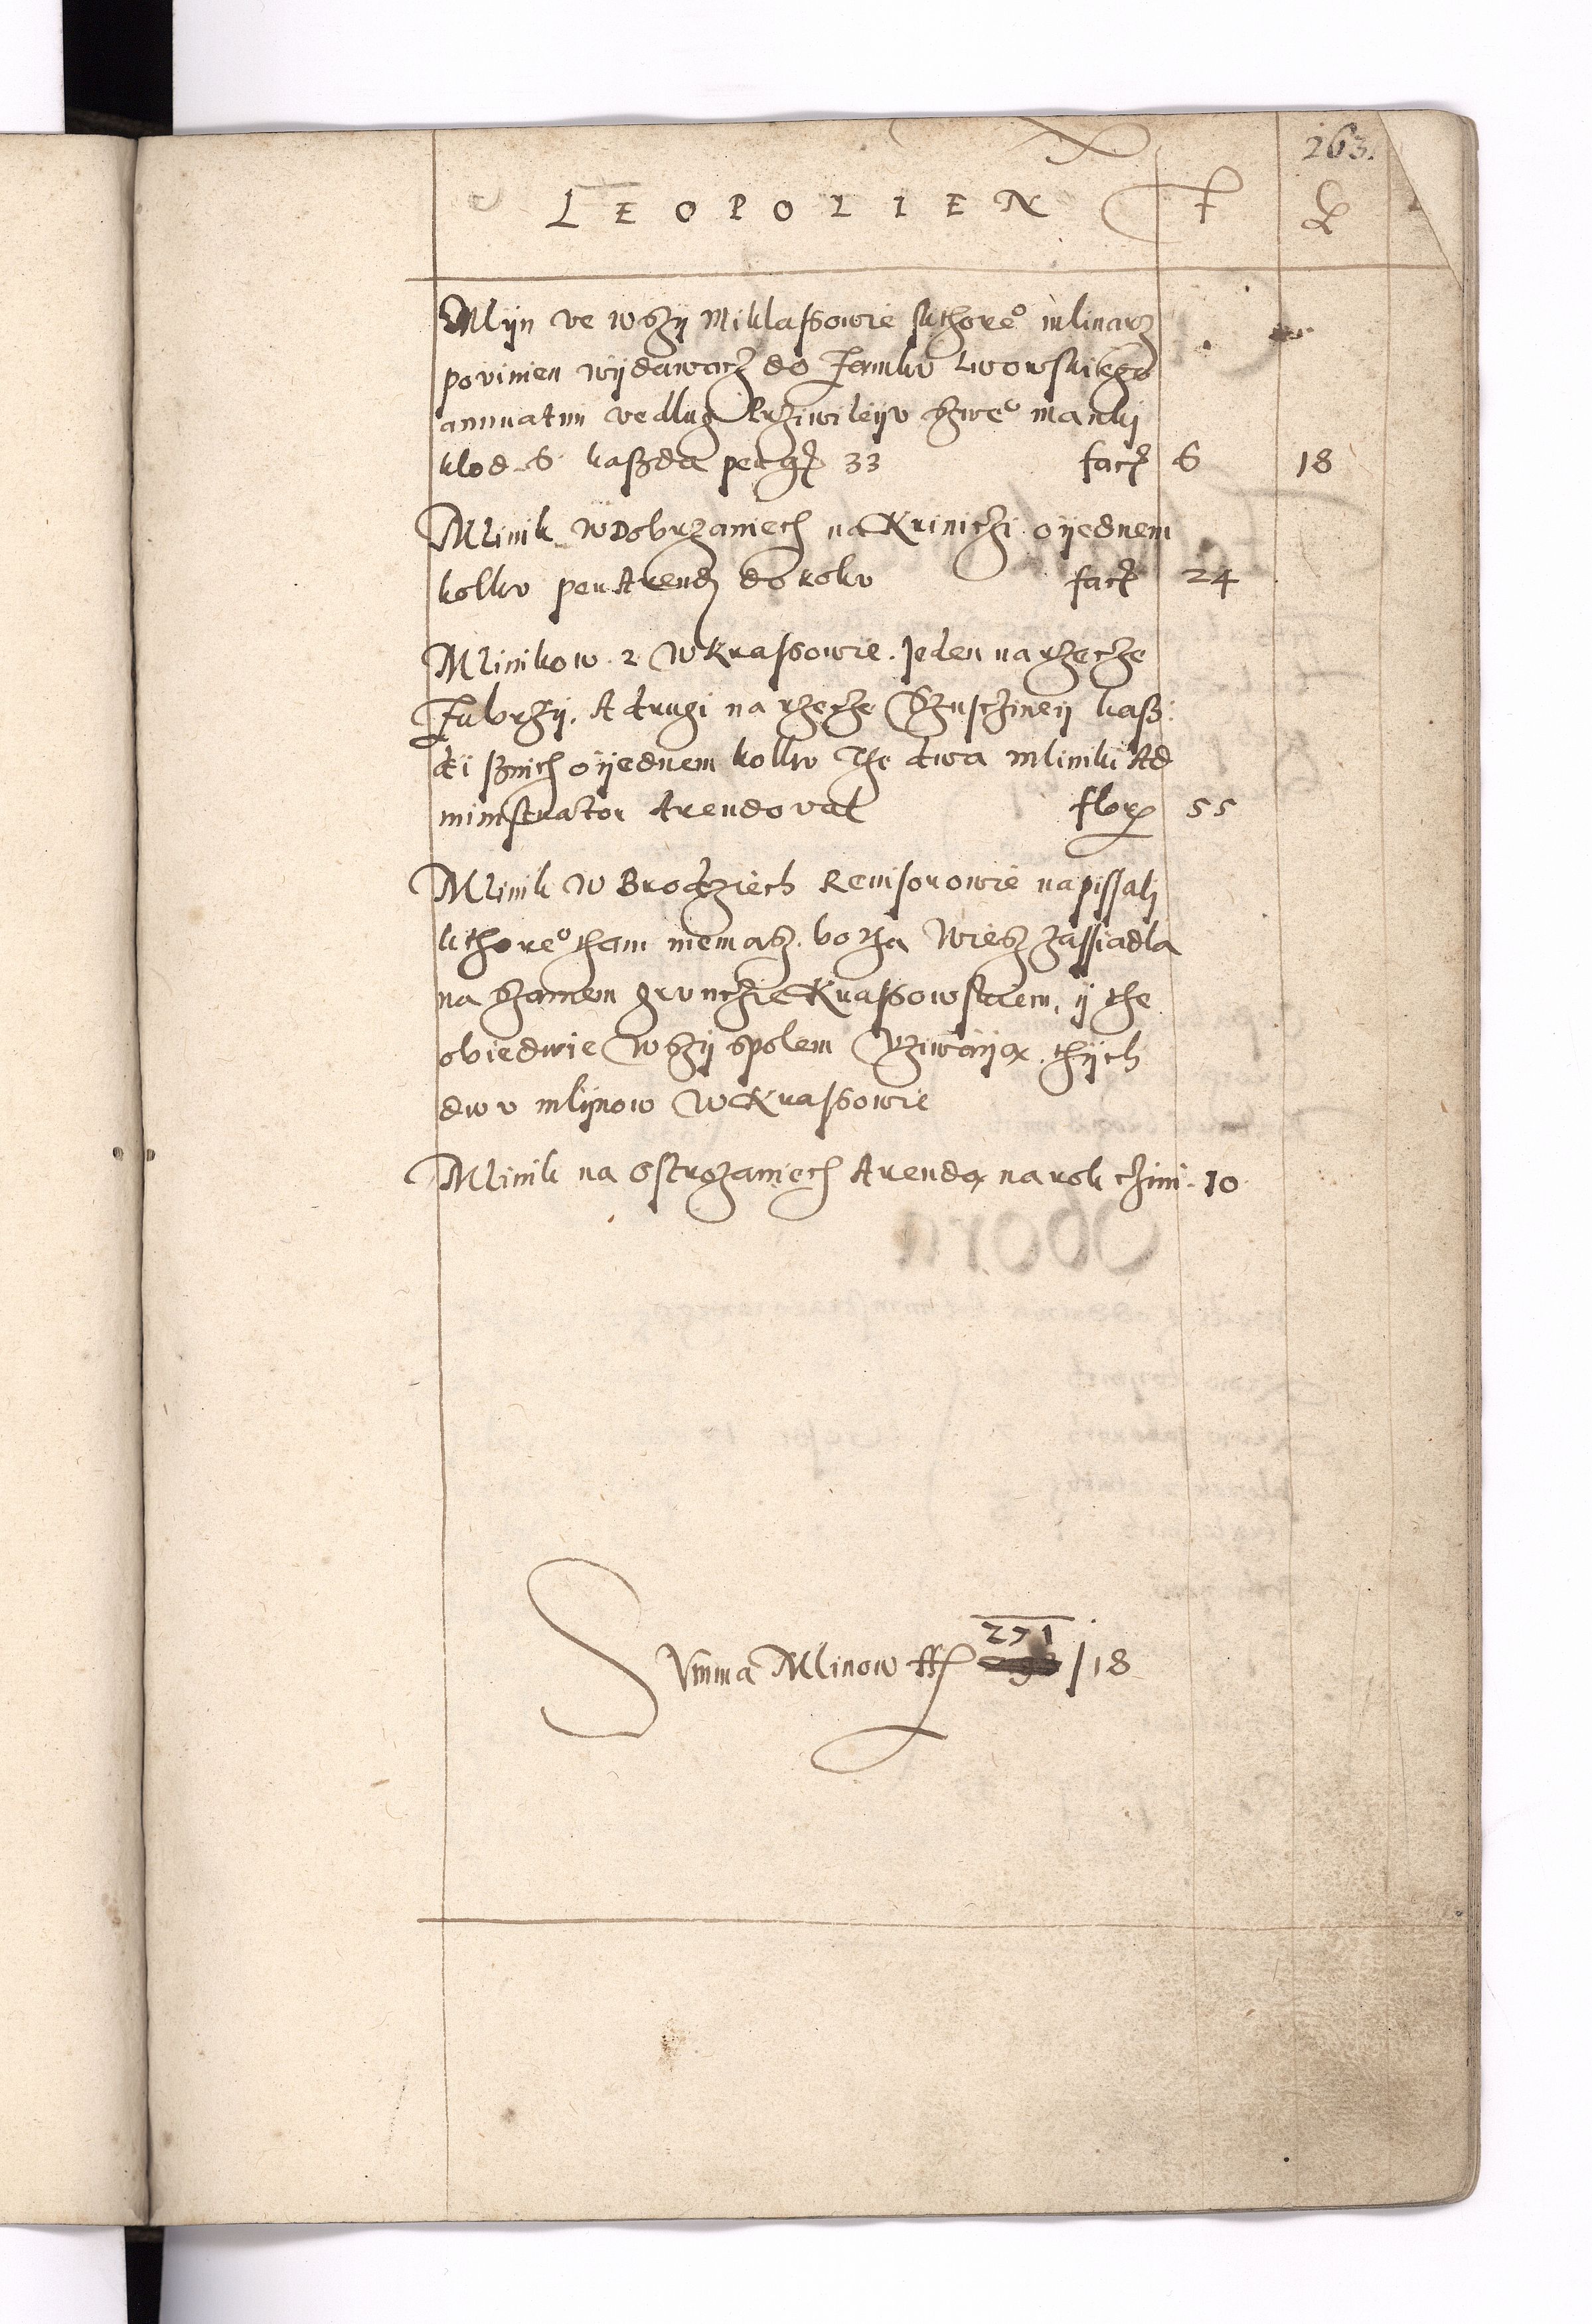 263.
LEOPOLIEN f g
Mlyn ve wszy Miklassowie skthore° mlinarz
povinien wydawacz do Zamku Lwowskiego
annuatim vedlug Przivileyv szwe° manky
klod 6 kaszda per gr 33 facit 6 18
Mlinik w Dobrzaniech na Kriniczi o yednem
kolku per Arendam do roku facit 24
Mlinikow 2 w Krassowie. Jeden na rzecze
Zubrzy. A drugi na rzecze Szusczineÿ kasz
di sznich o yednem kolku The dwa mliniki Ad
ministrator Arendoval flor 55
Mlinik w Brodziech Revisorowie napissalj
kthore° tham niemasz. bo tha wiesz zassiadla
na szamem grunczie Krassowskiem, y the
obiedwie wszy spolem Vziwayą thych
dwv mlynow w Krassowie
Mlinik na Ostrozaniech Arendą na rok czini 10
271
Summa Mlinow ff /18